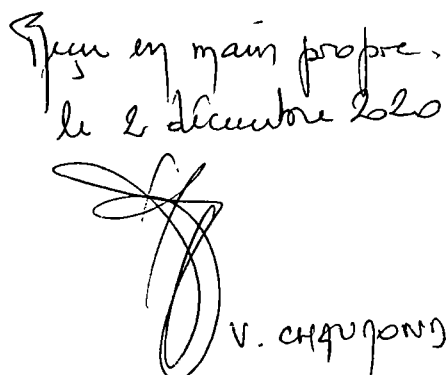 Reçu en main propre.
le 2 décembre 2020
V. CHAUMOND